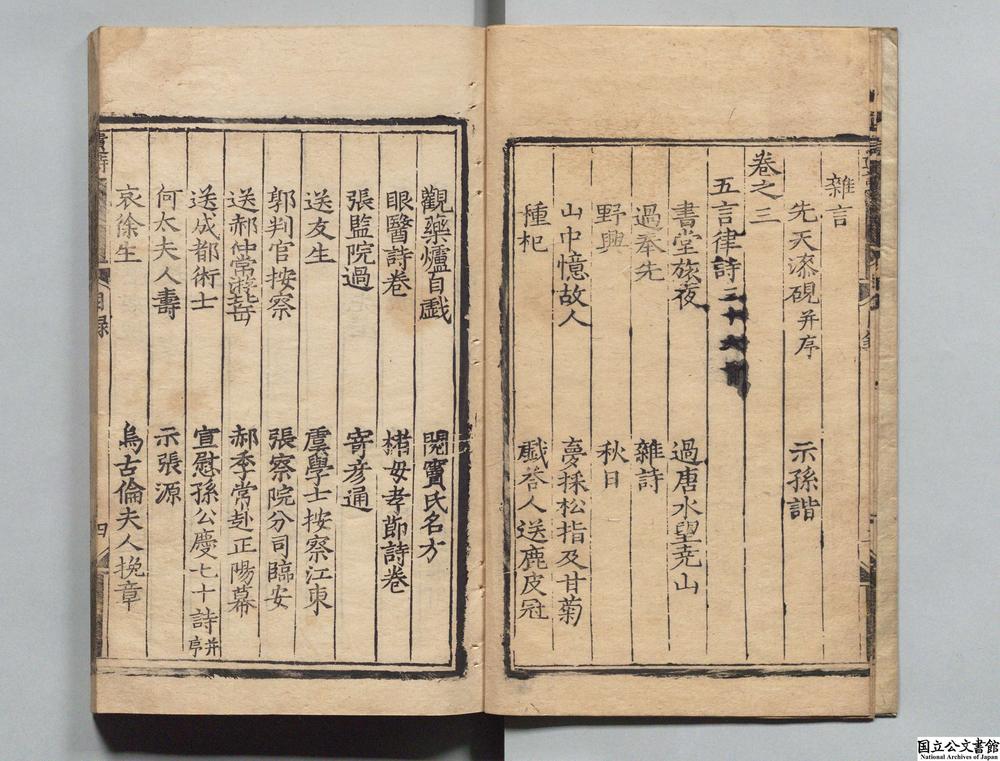 雜言
先天漆硯并序　示孫諧
卷之三
五言律詩二十七首
書堂旅夜　過唐水望尭山
過奉先　雜詩
野興　秋日
山中憶故人　夢採松指及甘菊
種杞　戱荅人送鹿皮冠
觀藥爐自戱　閱竇氏名方
眼醫詩卷　楮母孝節詩卷
張監院過　寄彦通
送友生　虞學士按察江東
郭判官按察　張察院分司臨安
送郝仲常遊岳　郝季常赴正陽幕
送成都術士　宣慰孫公慶七十詩并序
何太夫人壽　示張源
哀徐生　烏古倫夫人挽章
目録
四
国立公文書館
National Archives of Japan